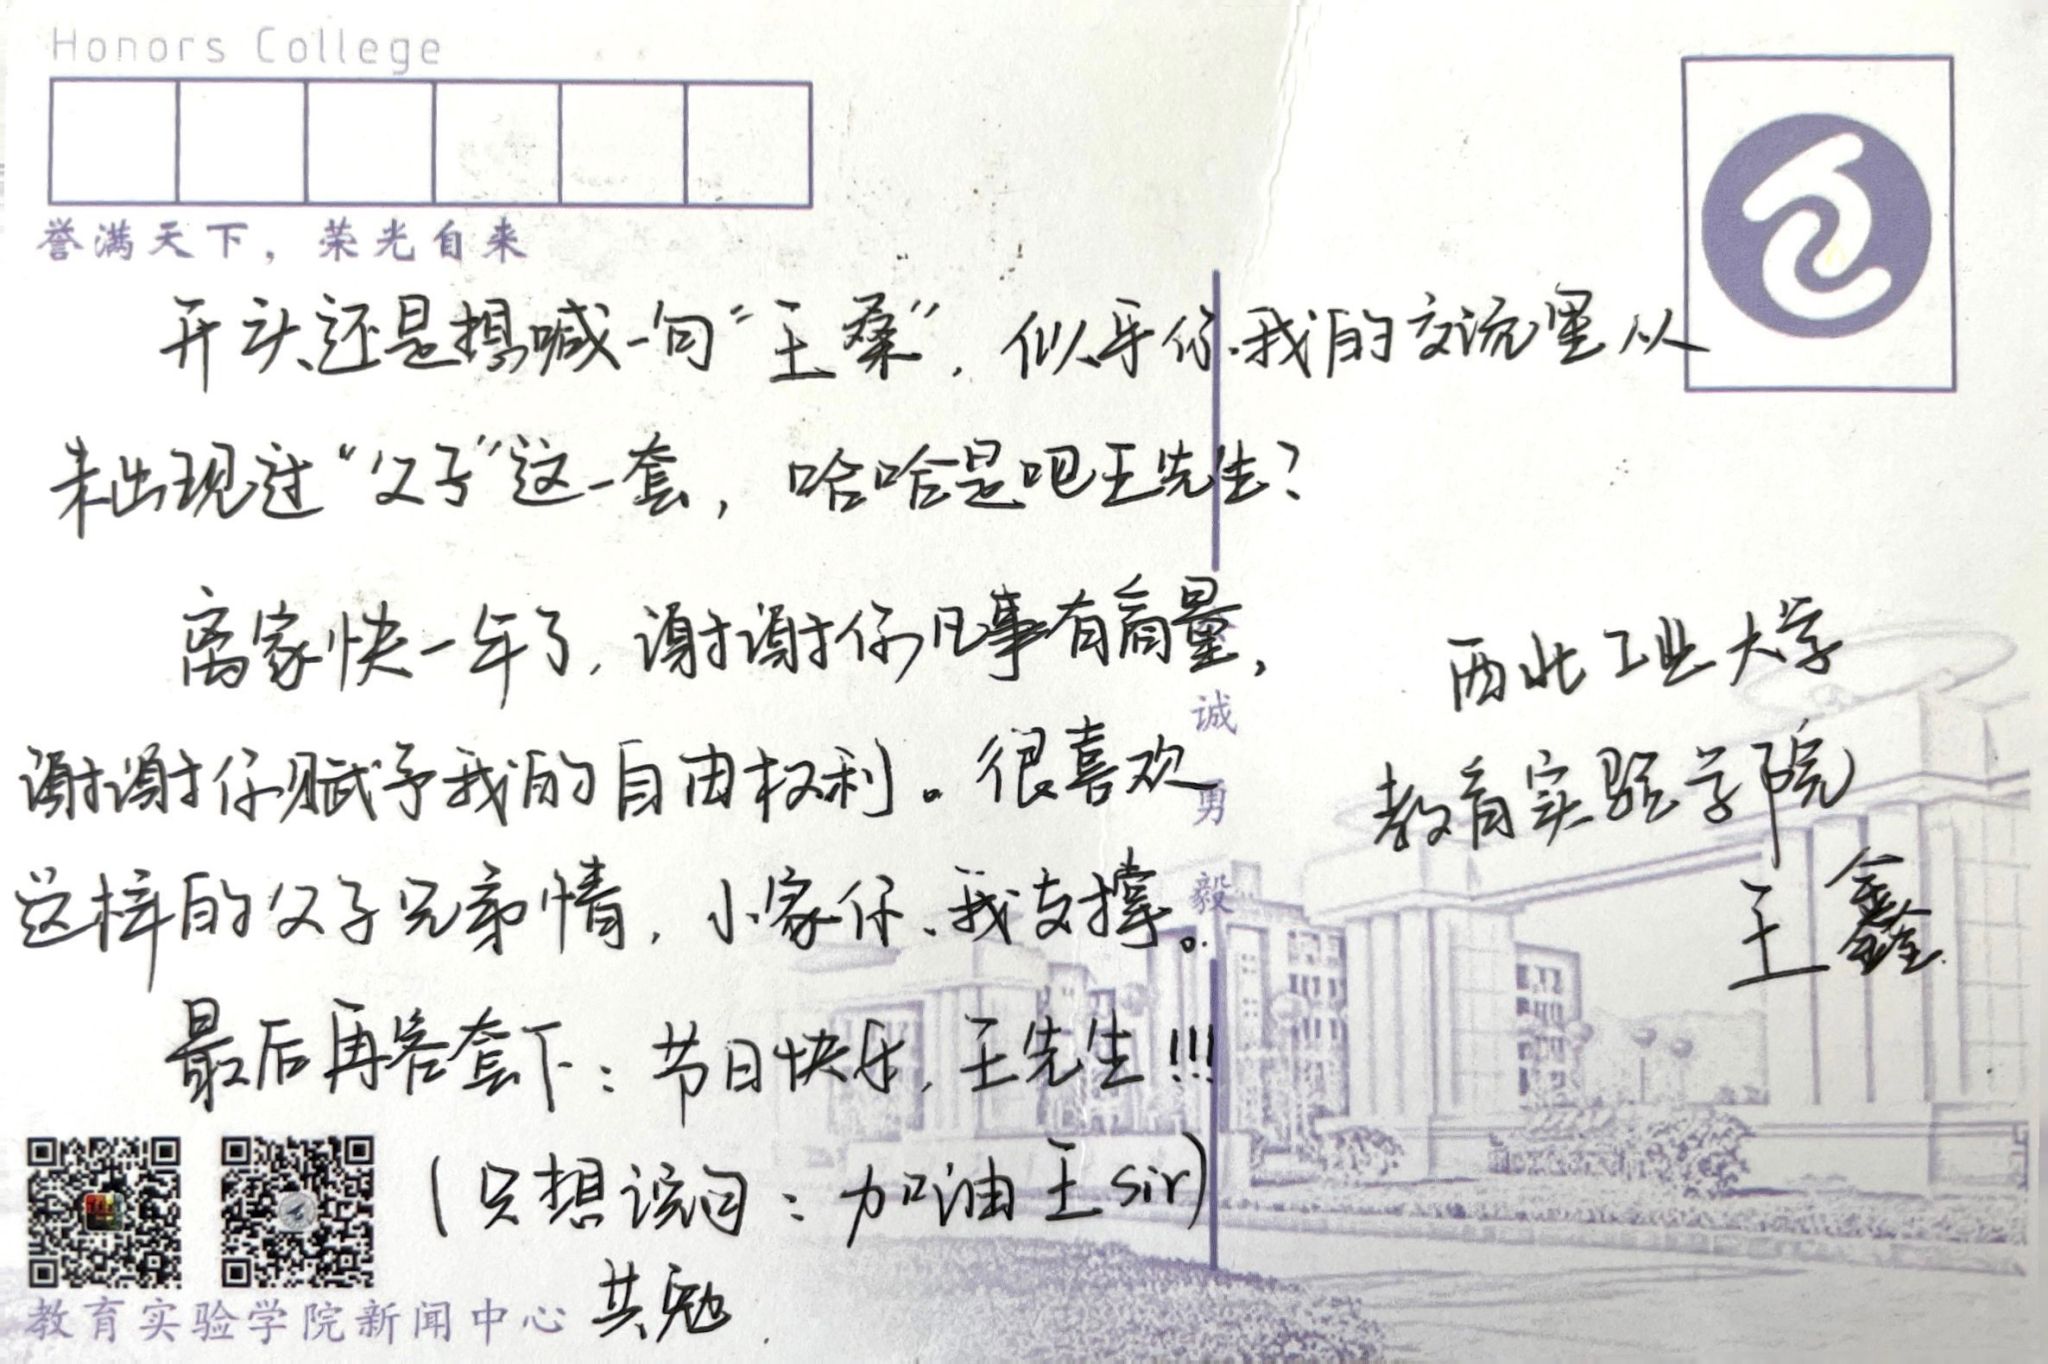 Honors College
誉满天下，荣光自来
开头还是想喊一句“王桑”，似乎你、我的交流里从
未出现过“父子”这一套，哈哈是吧王先生？
离家快一年了，谢谢你凡事有商量，
谢谢你赋予我的自由权利。很喜欢
这样的父子兄弟情，小家你、我支撑。
最后再客套下：节日快乐，王先生!!!
(只想说句：加油王sir)
共勉.
诚
勇
毅
西北工业大学
教育实验学院
王鑫
教育实验学院新闻中心